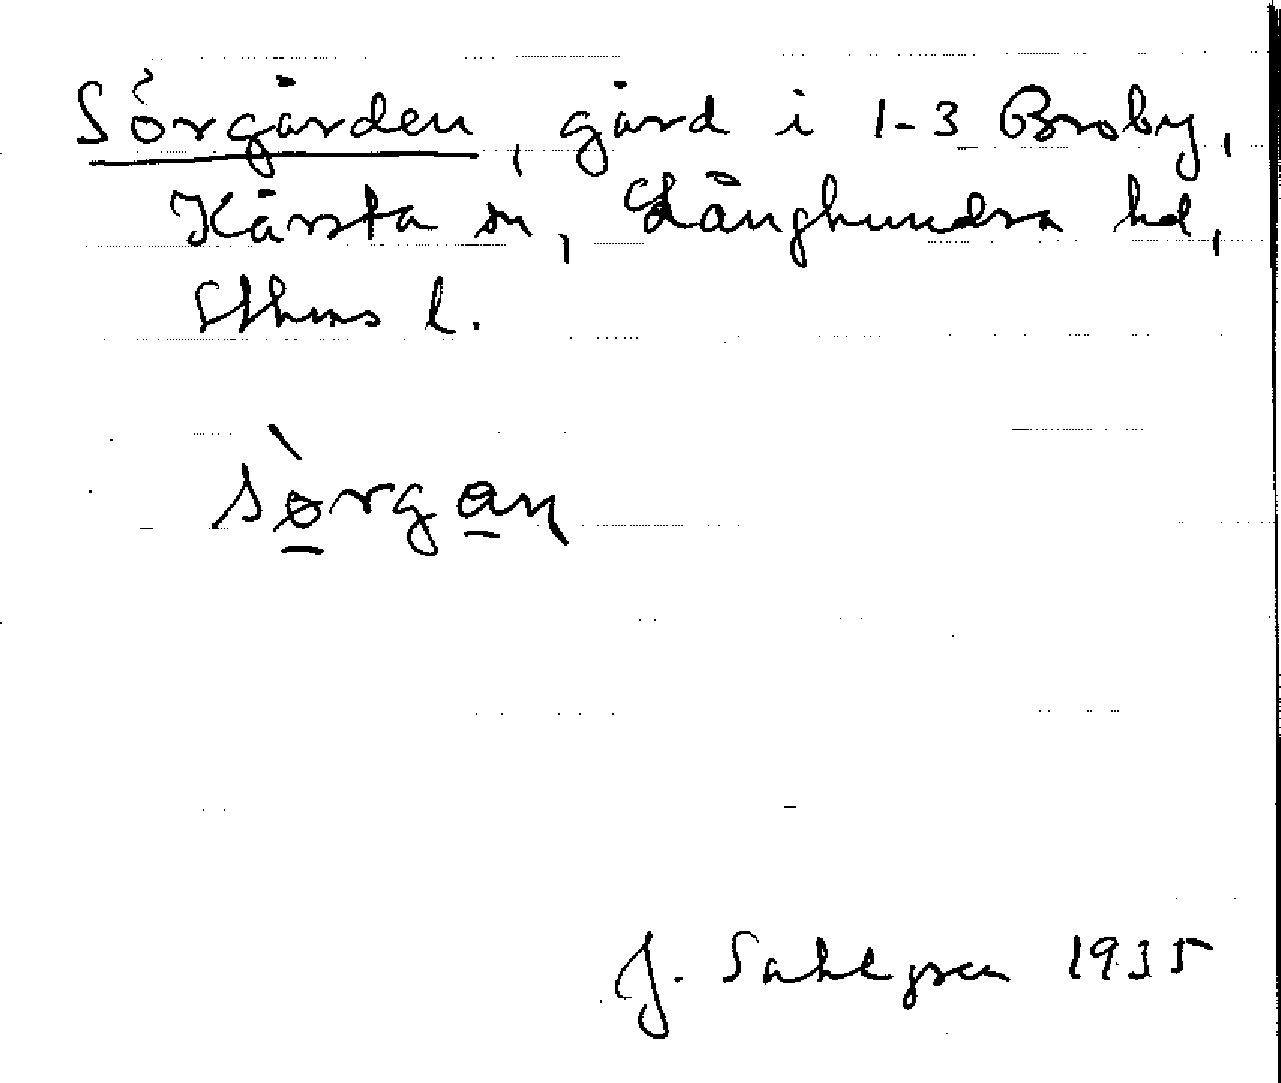 Sörgården, gård i 1-3 Broby,
Kårsta sn, Långhundra hd,
Sthms l.
sørgan
J. Sahlgren 1935